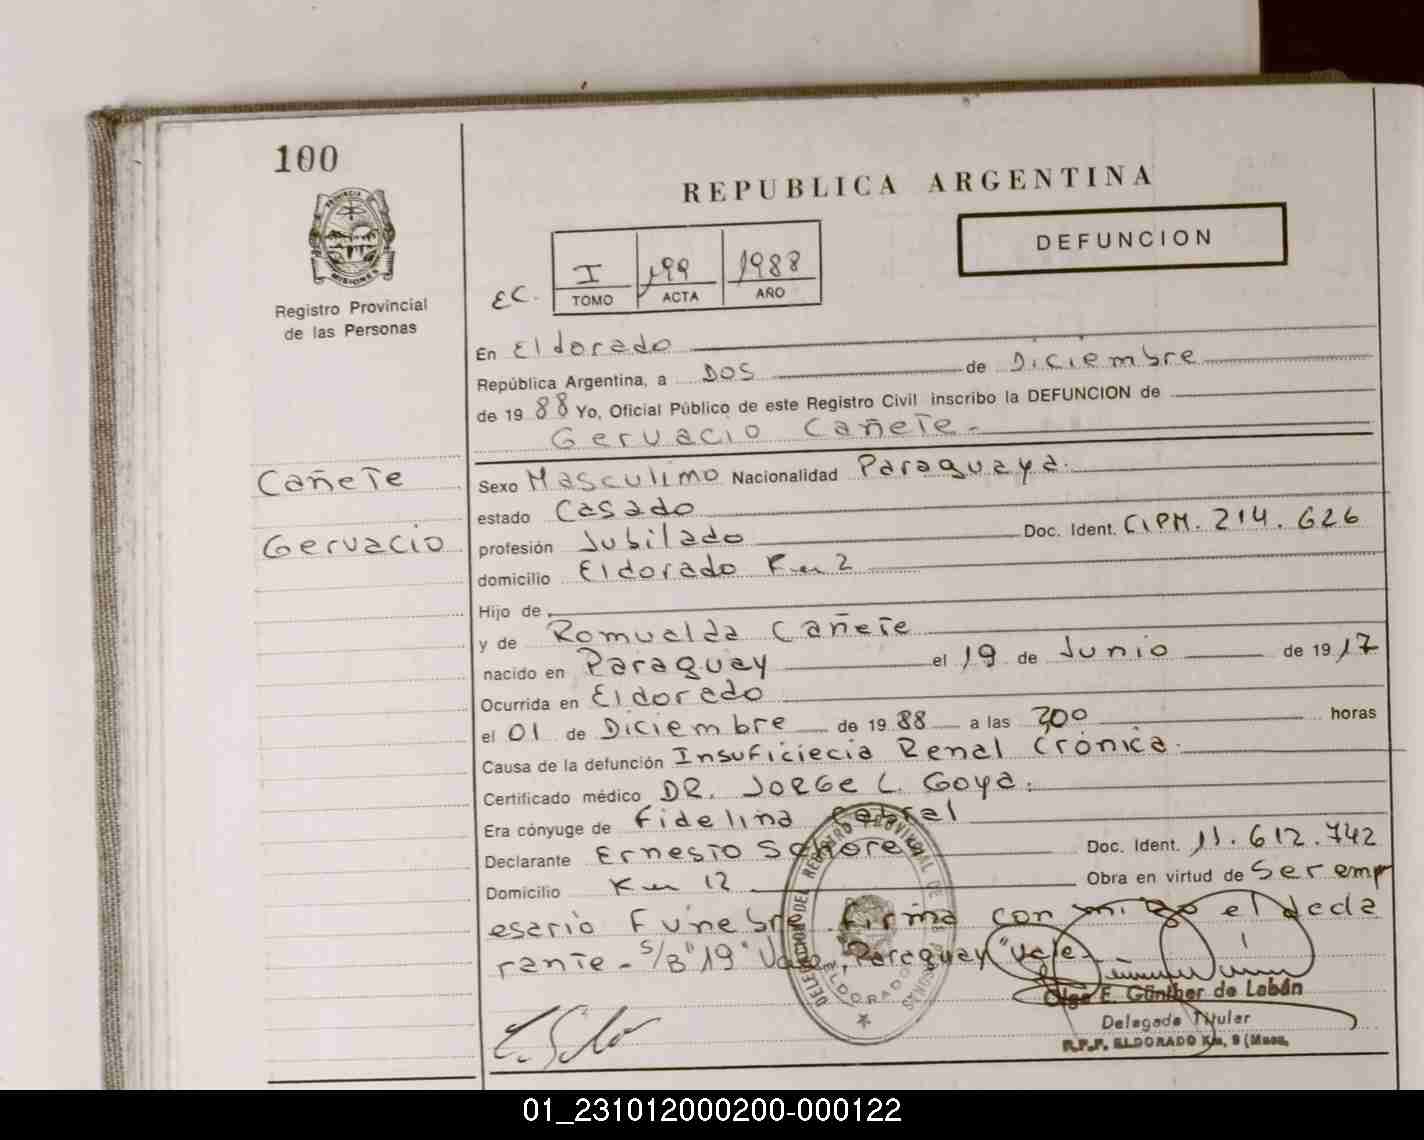 100
REPUBLICA ARGENTINA
DEFUNCION
I 199 1988
EC. TOMO ACTA AÑO
Registro Provincial
de las Personas
En Eldorado
República Argentina, a DOS de Diciembre
de 19 88 Yo, Oficial Público de este Registro Civil inscribo la DEFUNCION de
Gervacio Cañete.
Cañete
Gervacio
Sexo Masculino Nacionalidad Paraguaya.
estado Casado
profesión Jubilado Doc. Ident. CIPM. 214.626
domicilio Eldorado Km 2
Hijo de
y de Romualda Cañete
nacido en Paraguay el 19 de Junio de 19 17
Ocurrida en Eldorado
el 01 de Diciembre de 19 88 a las 300 horas
Causa de la defunción Insuficiecia Renal Crónica.
Certificado médico DR. Jorge L. Goya.
Era cónyuge de Fidelina Cabral
Declarante Ernesto Doc. Ident. 11.612.742
Domicilio Km 12 Obra en virtud de Ser emp
esario Funebre firma con migo el decla
rante- s/B "19" Vale, "Paraguay" Vale-
DELEGACION DEL REGISTRO PROVINCIAL DE LAS PERSONAS
ELDORADO
Olga E. Günther de Labán
Delegada Titular
R.P.P. ELDORADO Km. 9 (Mnes.
01_231012000200-000122